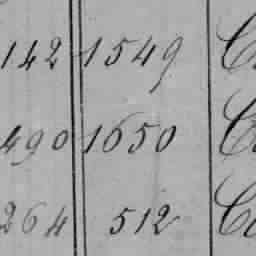 142 1549
490 1650
264 512